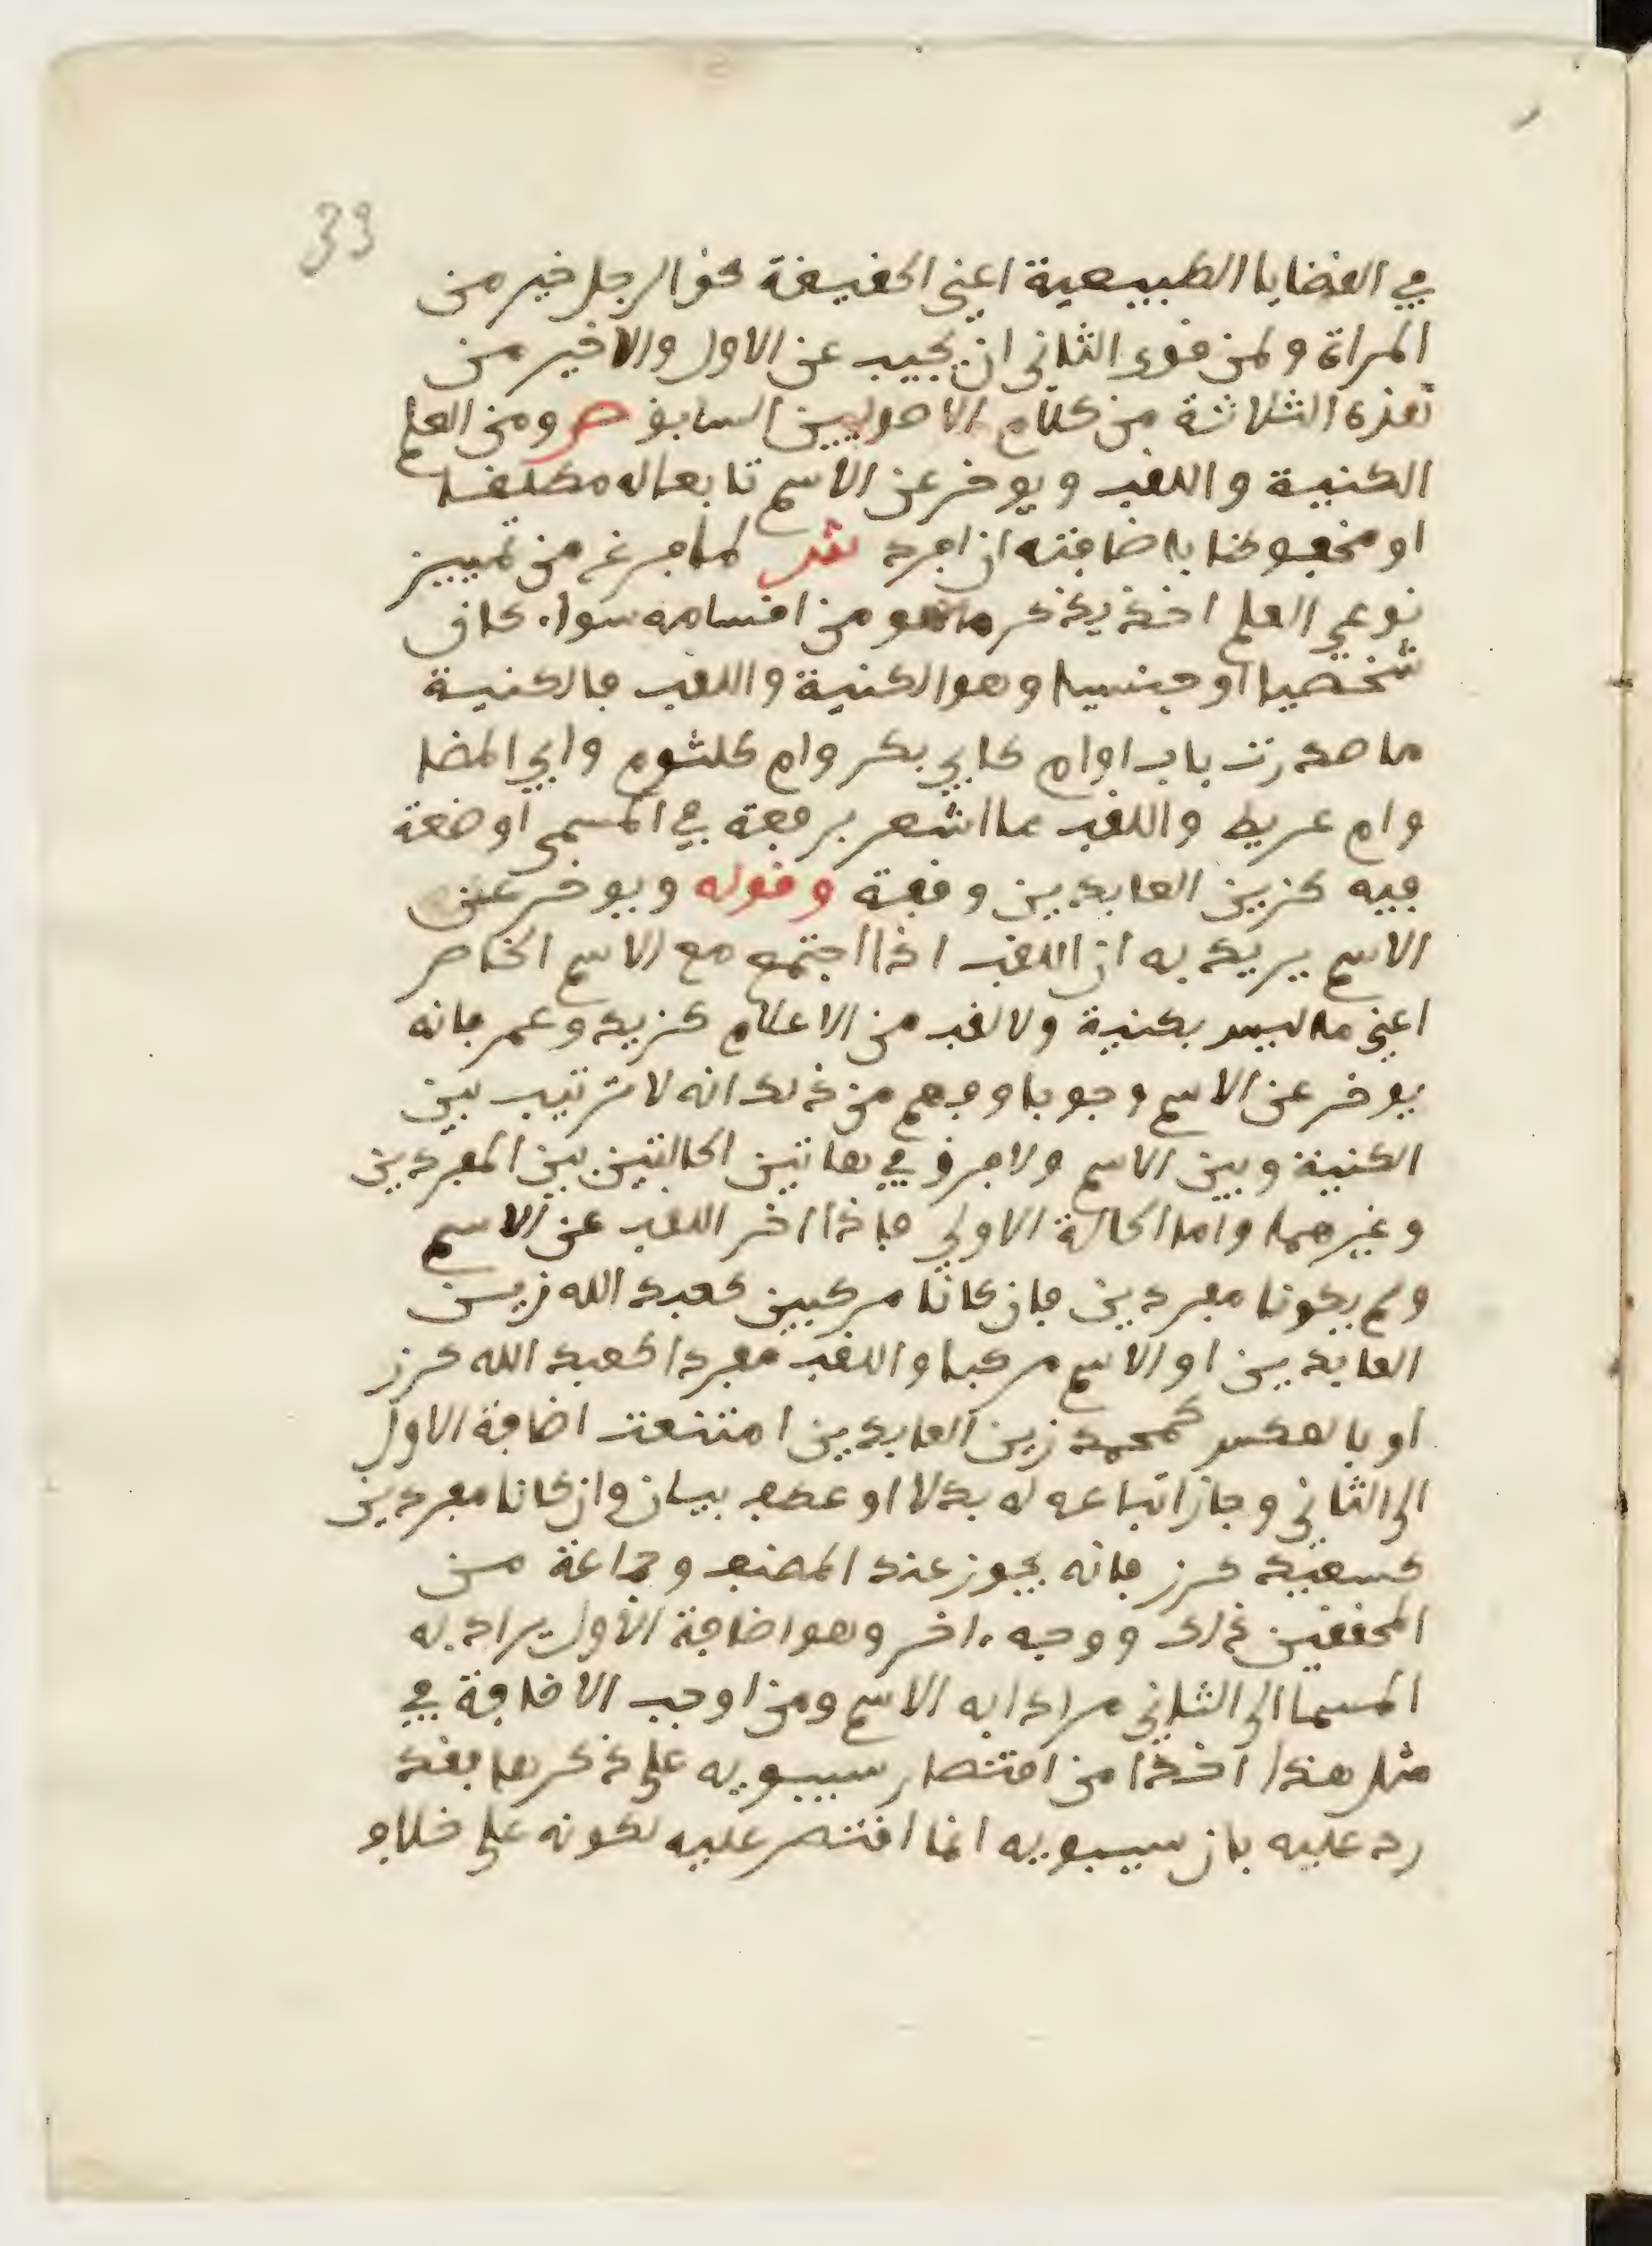 33
في القضايا الطبيعية اعني الحقيقة نحو الرجل خير من
المراة ولمن قوى الثاني ان يجيب عن الاول والاخير من
هذه الثلاثة من كلام الاصوليين السابق ص ومن العلم
الكنية واللقب ويوخر عن الاسم تابعا له مطلقا
او مخفوضا باضافته ان افرد ش لما فرغ من تمييز
نوعي العلم اخذ يذكر ما هو من اقسامه سواء كان
شخصيا او جنسيا وهو الكنية واللقب فالكنية
ما صدرت باب او ام كابي بكر وام كلثوم وابي المضا
وام عريط واللقب ما اشعر برفعة في المسمى او ضعة
فيه كزين العابدين وقفة وقوله ويوخر عن
الاسم يريد به ان اللقب اذا اجتمع مع الاسم الخاص
اعني ما ليس بكنية ولا لقب من الاعلام كزيد وعمر فانه
يوخر عن الاسم وجوبا وفهم من ذلك انه لا ترتيب بين
الكنية وبين الاسم ولا فرق في هاتين الحالتين بين المفردين
وغيرهما واما الحالة الاولى فاذا اخر اللقب عن الاسم
ولم يكونا مفردين فان كانا مركبين كعبد الله زين
العابدين او الاسم مركبا واللقب مفردا كعبد الله كرز
او بالعكس كمحمد زين العابدين امتنعت اضافة الاول
الى الثاني وجاز اتباعه له بدلا او عطف بيان وان كانا مفردين
كسعيد كرز فانه يجوز عند المصنف وجماعة من
المحققين ذلك ووجه ءاخر وهو اضافة الاول يراد به
المسما الى الثاني مرادا به الاسم ومن اوجب الاضافة في
مثل هذا اخذا من اقتصار سيبويه على ذكرها فقد
رد عليه بان سيبويه انما اقتصر عليه لكونه على خلاف